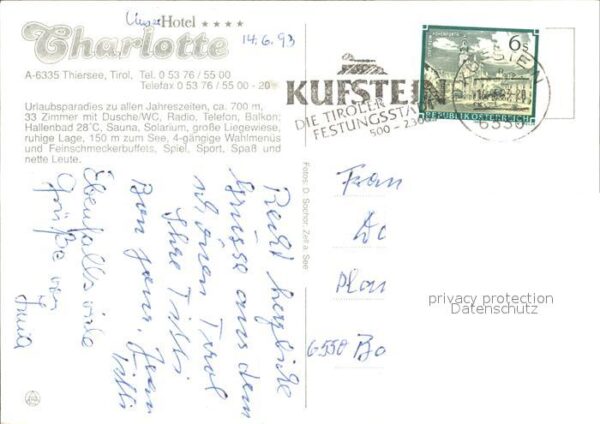 Unser Hotel ★★★★
Charlotte
14.6.93
A-6335 Thiersee, Tirol, Tel. 0 53 76 / 55 00
Telefax 0 53 76 / 55 00 - 20
Urlaubsparadies zu allen Jahreszeiten, ca. 700 m,
33 Zimmer mit Dusche/WC, Radio, Telefon, Balkon;
Hallenbad 28°C, Sauna, Solarium, große Liegewiese,
ruhige Lage, 150 m zum See, 4-gängige Wahlmenüs
und Feinschmeckerbuffets, Spiel, Sport, Spaß und
nette Leute.
Recht herzliche
Grüsse aus dem
schönen Tirol
Ihre Tissi
Bon jour, Jean
Tissi
Ebenfalls viele
Grüße von
Fotos: D. Sochor, Zell a. See
KUFSTEIN
DIE TIROLER
FESTUNGSSTA
500 - 2300
6s
REPUBLIK ÖSTERREICH
6330
Frau
Do
Plan
6550 Ba
privacy protection
Datenschutz